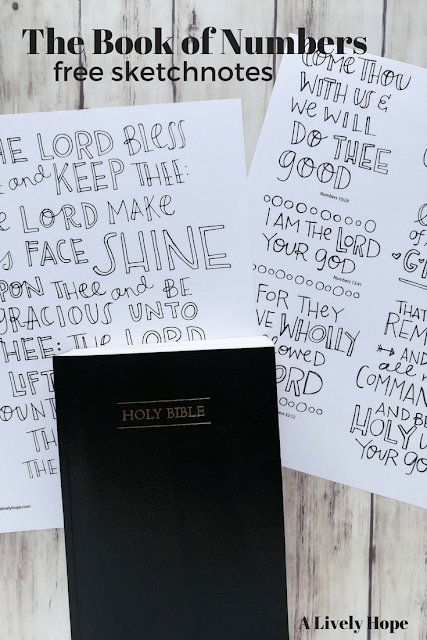 The Book of Numbers
free sketchnotes
LORD BLESS
and KEEP THEE:
LORD MAKE
FACE SHINE
THEE and BE
GRACIOUS UNTO
THEE: THE LORD
LIFT
COME THOU
WITH US &
WE WILL
DO THEE
GOOD
Numbers 10:29
I AM THE LORD
YOUR GOD
Numbers 15:41
FOR THEY
WHOLLY
LORD
32:12
THAT
AND
all
AND BE
HOLY
YOUR
HOLY BIBLE
A Lively Hope